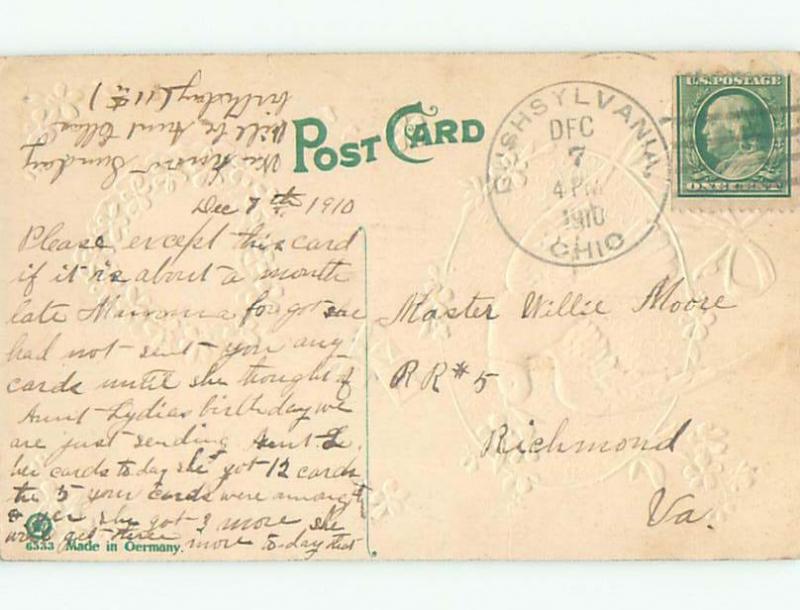 POST CARD
RUSHSYLVANIA,
DEC
7
4 PM
1910
OHIO
U.S. POSTAGE
ONE CENT
Dec 7th 1910
Please except this card
if it is about a month
late Mamma forgot she
had not sent you any
cards until she thought of
Aunt Lydias birthday we
are just sending Aunt L.
her cards to day she got 12 cards
the 5 your cards were amongst
yer she got 3 more she
will get three more to-day that
Master Willie Moore
RR #5
Richmond
Va.
We know Sunday
will be Aunt
birthday (11th)
6533 Made in Germany.